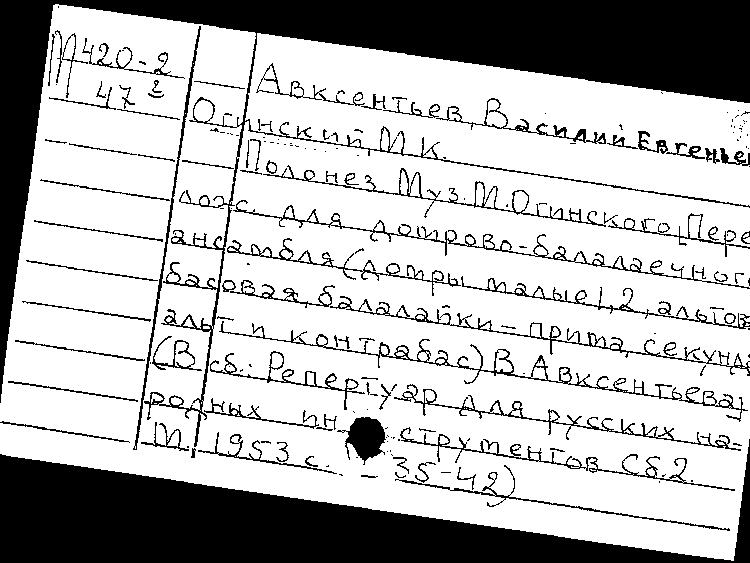 М420-2
47 2
Авксентьев, Василий Евгеньев
Огинский, М.К.
Полонез Муз. М. Огинского, Пере
лож. для домрово-балалаечного
ансамбля (домры малые 1, 2, альтов
басовая, балалайки – прима, секунда
альт и контрабас) В. Авксентьева,
(В сб.: Репертуар для русских на=
родных инструментов Сб. 2.
М. 1953 с. 35-42)